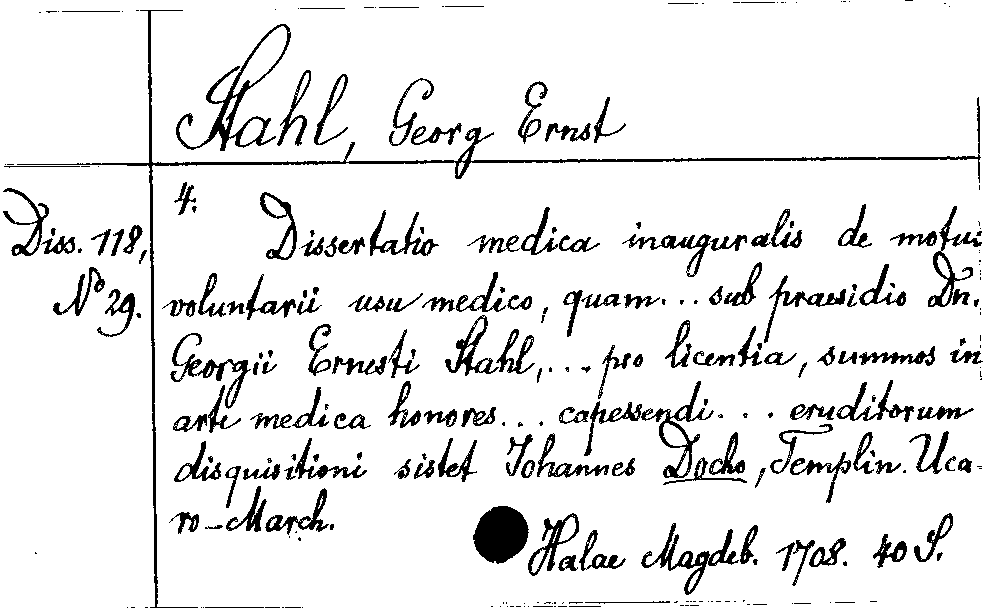 Stahl, Georg Ernst
4.
Diss. 118,
No 29.
Dissertatio medica inauguralis de motus
voluntarii usu medico, quam... sub praesidio Dn.
Georgii Ernesti Stahl,... pro licentia, summos in
arte medica honores... capessendi... eruditorum
disquisitioni sistet Johannes Docho, Templin. Uca-
ro-March.
Halae Magdeb. 1708. 40 S.